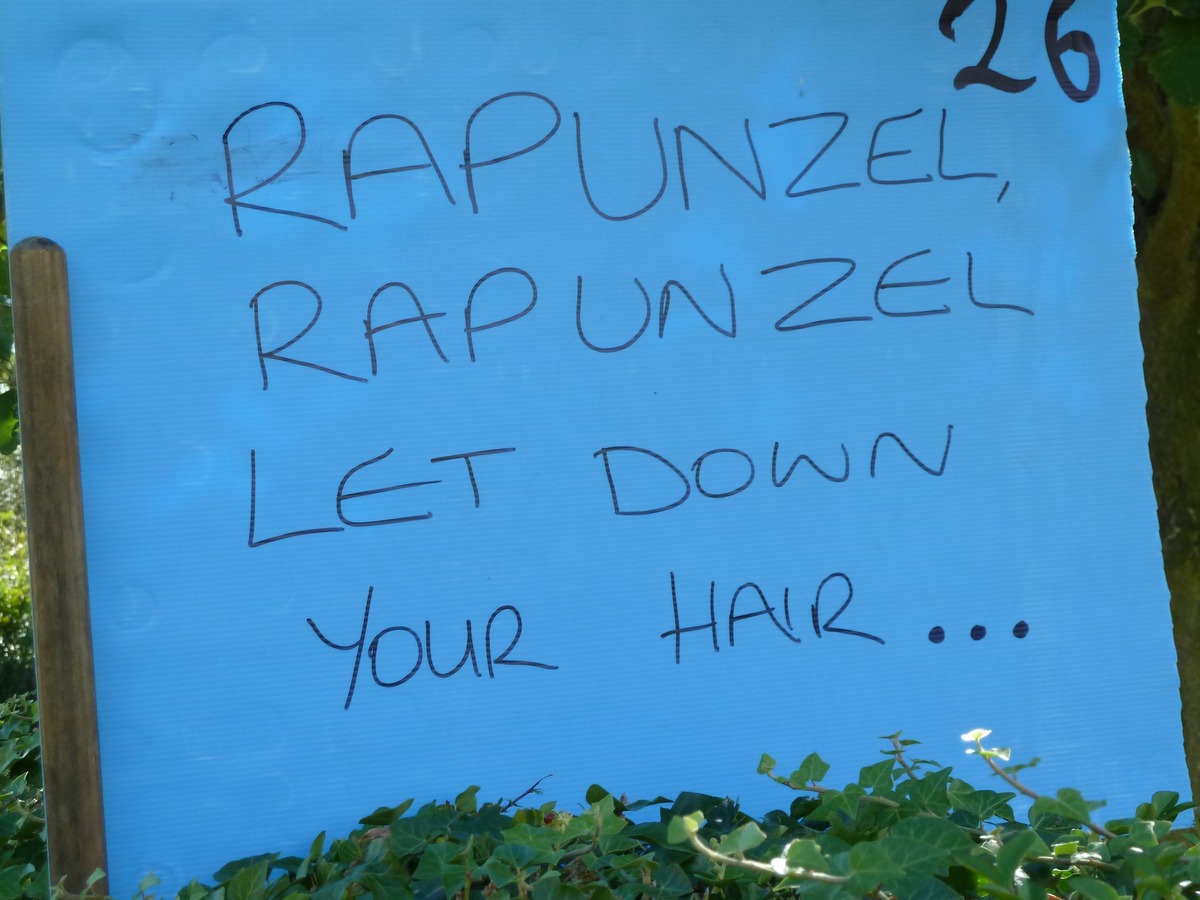 26
RAPUNZEL,
RAPUNZEL
LET DOWN
YOUR HAIR...